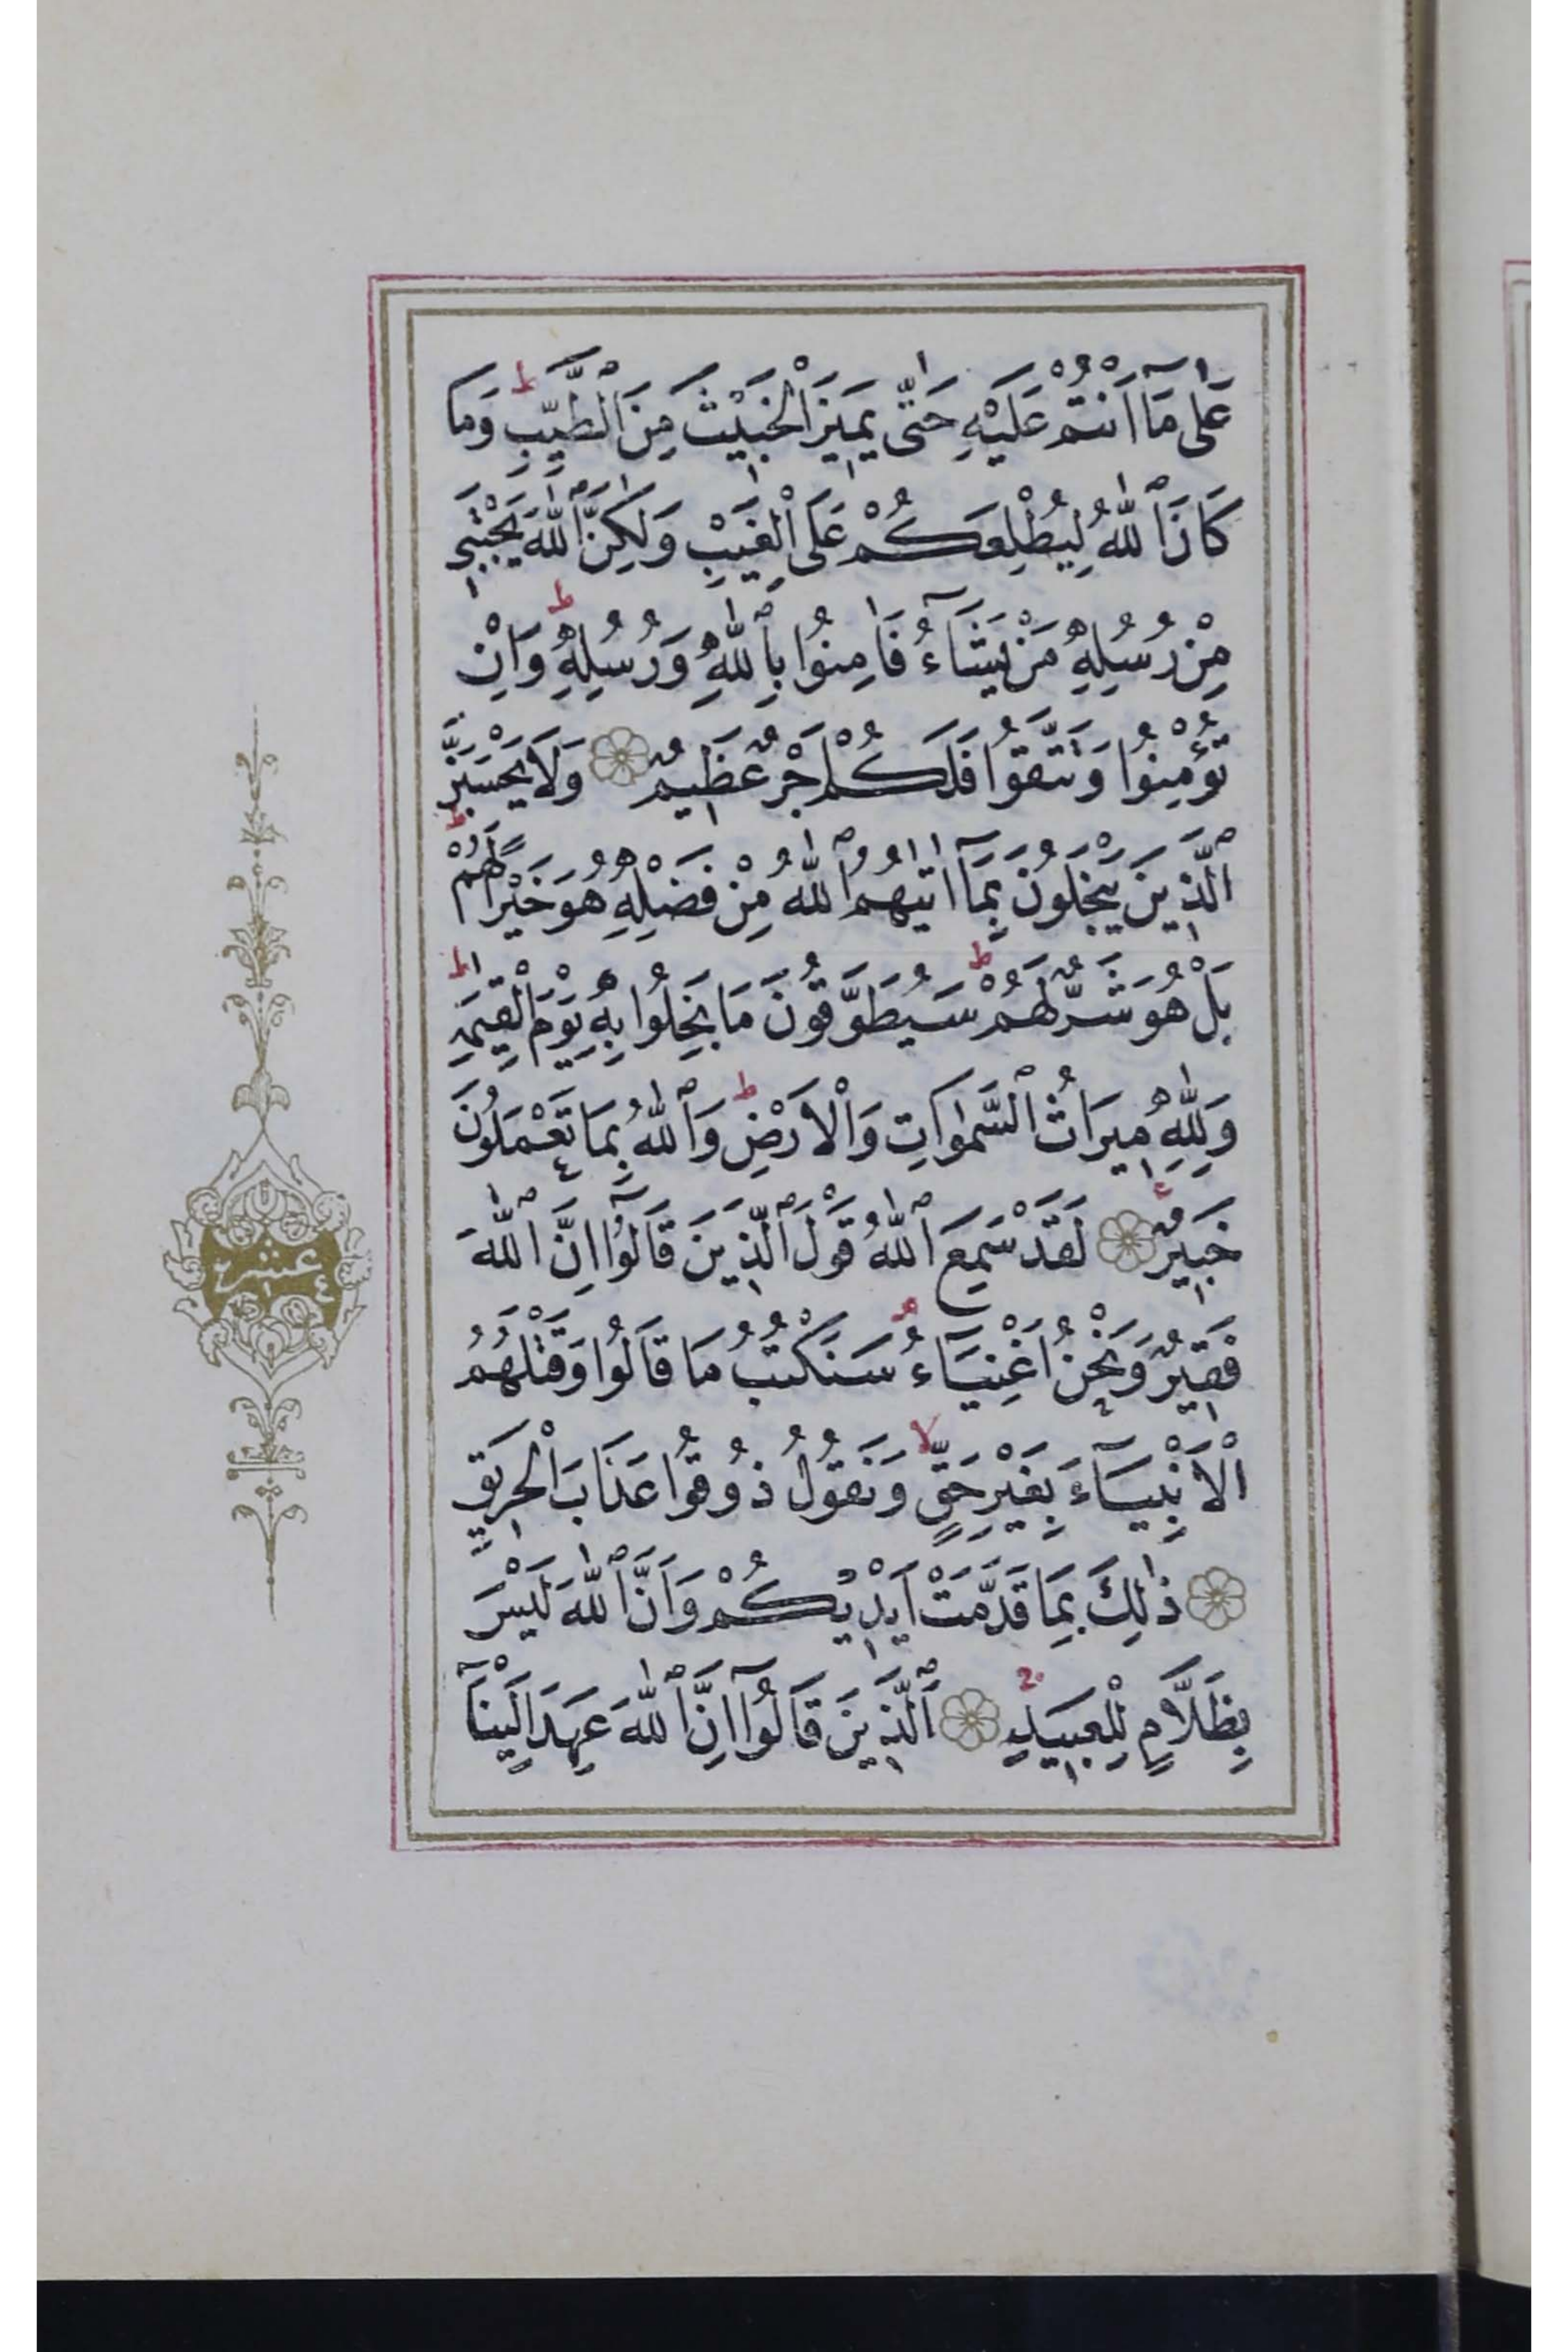 عَلٰى مَٓا اَنْتُمْ عَلَيْهِ حَتّٰى يَمِيزَ الْخَبِيثَ مِنَ الطَّيِّبِ ط وَمَا
كَانَ اللّٰهُ لِيُطْلِعَكُمْ عَلَى الْغَيْبِ وَلٰكِنَّ اللّٰهَ يَجْتَبِي
مِنْ رُسُلِهِ مَنْ يَشَٓاءُ فَاٰمِنُوا بِاللّٰهِ وَرُسُلِهِ ط وَاِنْ
تُؤْمِنُوا وَتَتَّقُوا فَلَكُمْ اَجْرٌ عَظِيمٌ وَلَا يَحْسَبَنَّ
الَّذِينَ يَبْخَلُونَ بِمَٓا اٰتٰيهُمُ اللّٰهُ مِنْ فَضْلِهِ هُوَ خَيْرًا لَهُمْ ط
بَلْ هُوَ شَرٌّ لَهُمْ ط سَيُطَوَّقُونَ مَا بَخِلُوا بِهِ يَوْمَ الْقِيٰمَةِ ط
وَلِلّٰهِ مِيرَاثُ السَّمٰوَاتِ وَالْاَرْضِ ط وَاللّٰهُ بِمَا تَعْمَلُونَ
خَبِيرٌ ع لَقَدْ سَمِعَ اللّٰهُ قَوْلَ الَّذِينَ قَالُٓوا اِنَّ اللّٰهَ
فَقِيرٌ وَنَحْنُ اَغْنِيَٓاءُ م سَنَكْتُبُ مَا قَالُوا وَقَتْلَهُمُ
الْاَنْبِيَٓاءَ بِغَيْرِ حَقٍّ لا وَنَقُولُ ذُوقُوا عَذَابَ الْحَرِيقِ
ذٰلِكَ بِمَا قَدَّمَتْ اَيْدِيكُمْ وَاَنَّ اللّٰهَ لَيْسَ
بِظَلَّامٍ لِلْعَبِيدِ اَلَّذِينَ قَالُٓوا اِنَّ اللّٰهَ عَهِدَ اِلَيْنَٓا
عشر